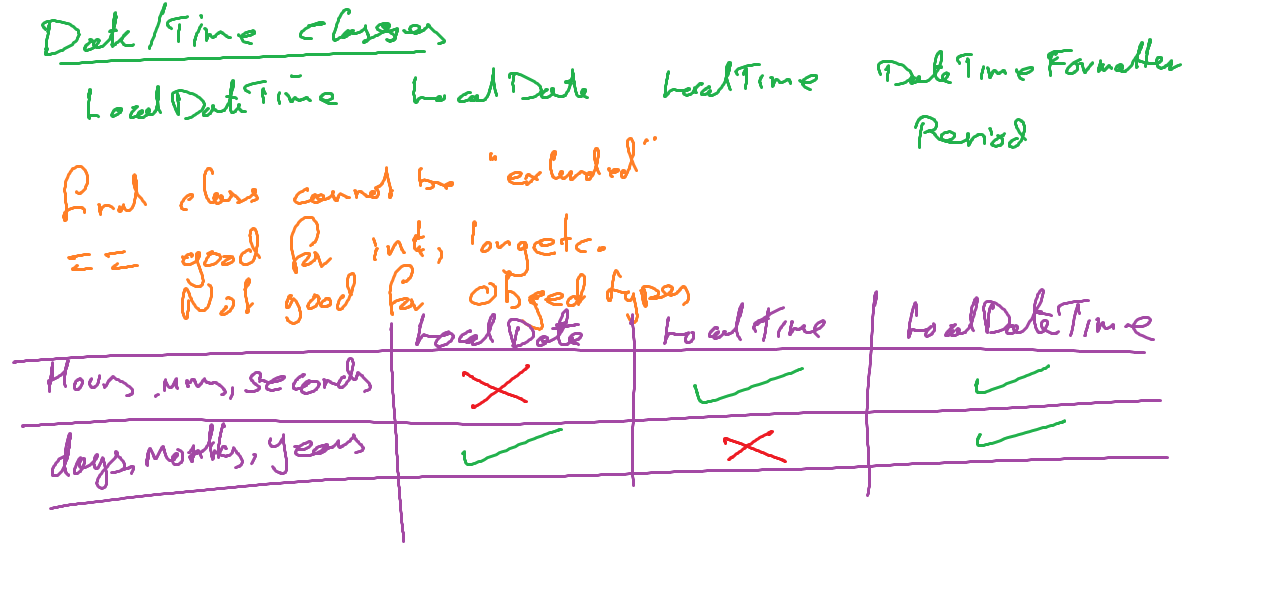 Date/Time classes
LocalDateTime LocalDate LocalTime DateTimeFormatter
Period
final class cannot be "extended"
== good for int, long etc.
Not good for Object types
LocalDate LocalTime LocalDateTime
Hours, mins, seconds
days, months, years